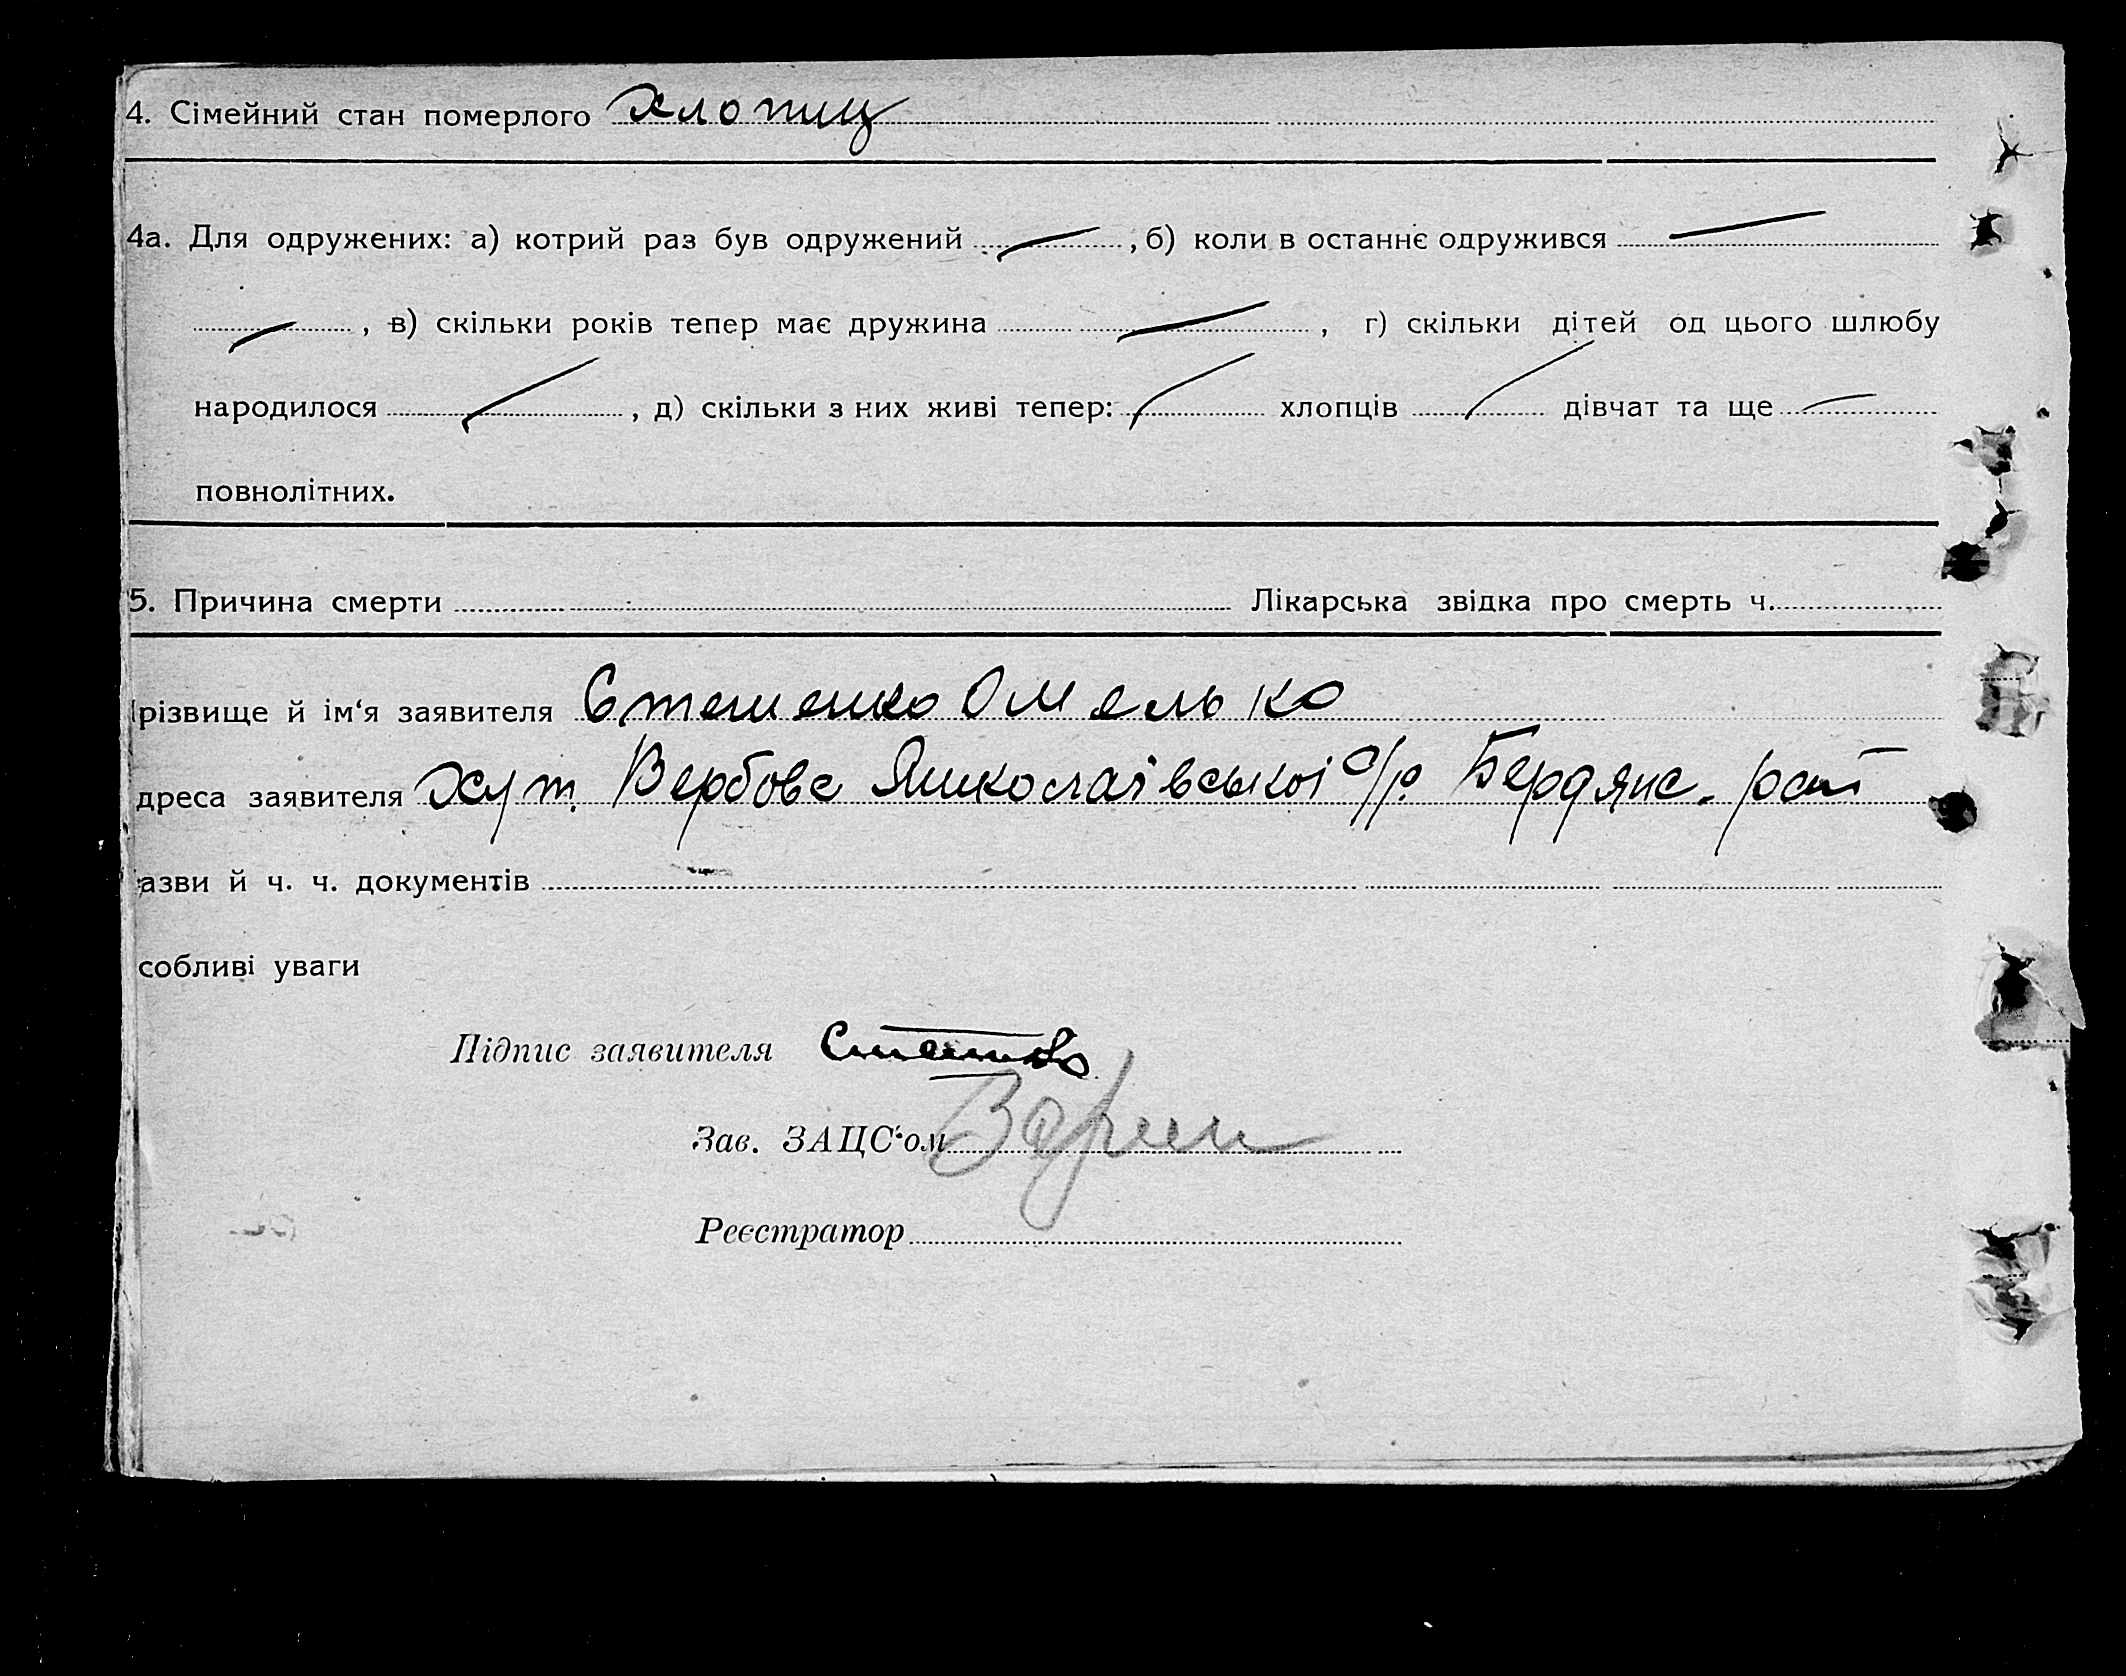 4. Сімейний стан померлого хлопиц
4а. Для одружених: а) котрий раз був одружений , б) коли в останнє одружився
, в) скільки років тепер має дружина , г) скільки дітей од цього шлюбу
народилося , д) скільки з них живі тепер: хлопців дівчат та ще
повнолітних.
5. Причина смерти Лікарська звідка про смерть ч.
різвище й ім'я заявителя Стешенко Омелько
дреса заявителя хут. Вербове Миколаївської с/р. Бердянс. рай
азви й ч. ч. документів
собливі уваги
Підпис заявителя
Зав. ЗАЦС'ом
Реєстратор